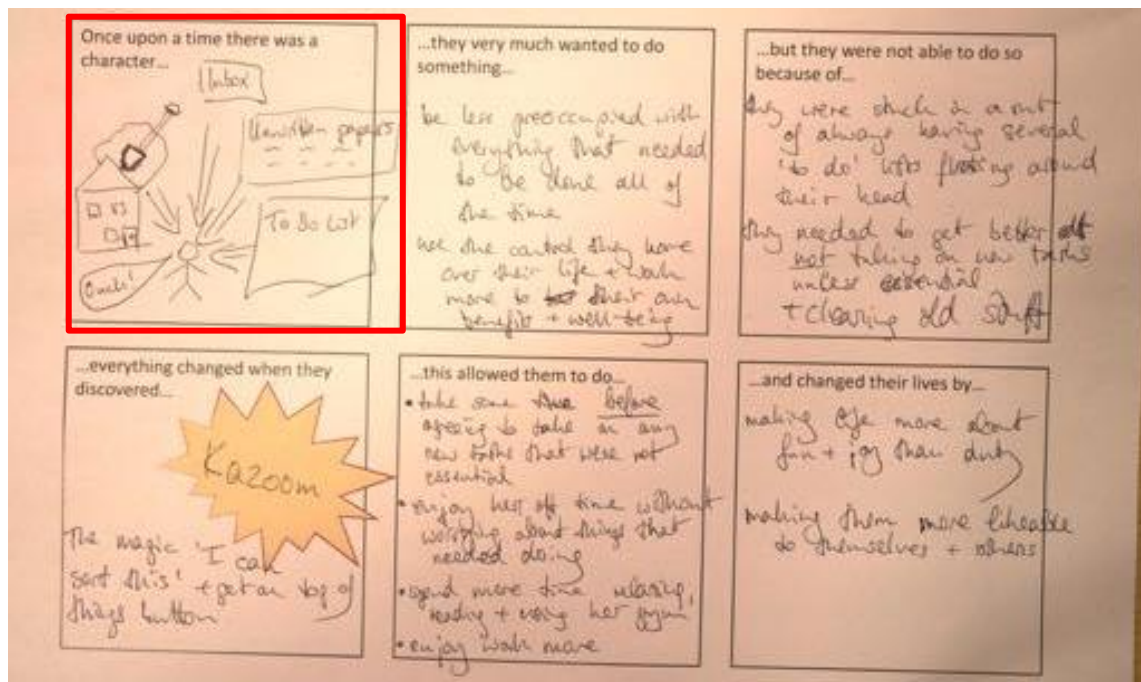 Once upon a time there was a
character...
Inbox
Unwritten papers
To Do List
Ouch!
...they very much wanted to do
something...
be less preoccupied with
everything that needed
to be done all of
the time
use the control they have
over their life + work
more to their own
benefit + well-being
...but they were not able to do so
because of...
they were stuck in a rut
of always having several
'to do' lists floating around
their head
they needed to get better at
not taking on new tasks
unless essential
+ clearing old stuff
...everything changed when they
discovered...
Kazoom
The magic 'I can
sort this' + get on top of
things button
...this allowed them to do...
• take some time before
agreeing to take on any
new tasks that were not
essential
• enjoy her off time without
worrying about things that
needed doing
• spend more time relaxing,
reading + using her gym
• enjoy work more
...and changed their lives by...
making life more about
fun + joy than duty
making them more likeable
to themselves + others